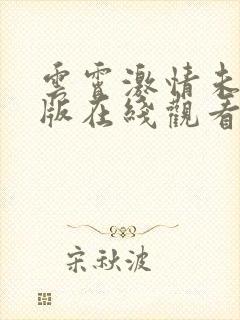 雲霄激情未
版在綫觀看
宋秋波